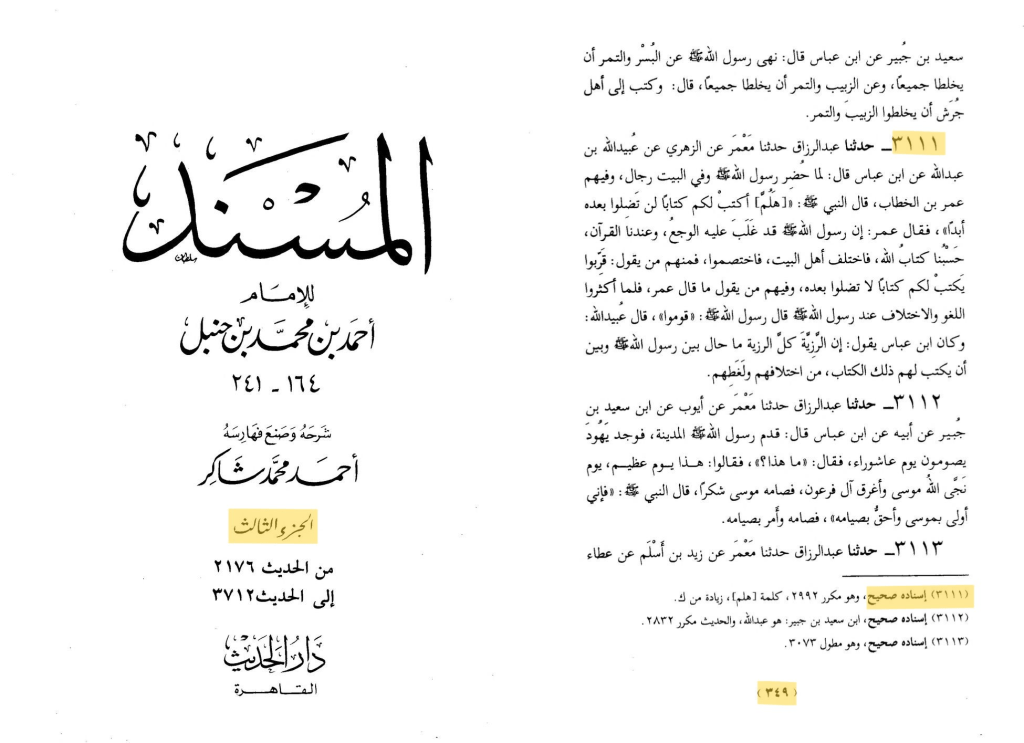 المسند
للإمام
أحمد بن محمد بن حنبل
١٦٤ - ٢٤١
شرحه وصنع فهارسه
أحمد محمد شاكر
الجزء الثالث
من الحديث ٢١٧٦
إلى الحديث ٣٧١٢
دار الحديث
القاهرة
سعيد بن جُبير عن ابن عباس قال: نهى رسول الله ﷺ عن البُسْر والتمر أن
يخلطا جميعًا، وعن الزبيب والتمر أن يخلطا جميعًا، قال: وكتب إلى أهل
جُرَش أن يخلطوا الزبيبَ والتمر.
٣١١١ــ حدثنا عبدالرزاق حدثنا مَعْمَر عن الزهري عن عُبيدالله بن
عبدالله عن ابن عباس قال: لما حُضِر رسول الله ﷺ وفي البيت رجال، وفيهم
عمر بن الخطاب، قال النبي ﷺ: «[هَلُمَّ] أكتبْ لكم كتابًا لن تَضِلوا بعده
أبدًا»، فقال عمر: إن رسول الله ﷺ قد غَلَبَ عليه الوجعُ، وعندنا القرآن،
حَسْبُنا كتابُ الله، فاختلف أهل البيت، فاختصموا، فمنهم من يقول: قرِّبوا
يَكتبْ لكم كتابًا لا تضلوا بعده، وفيهم من يقول ما قال عمر، فلما أكثروا
اللغو والاختلاف عند رسول الله ﷺ قال رسول الله ﷺ: «قوموا»، قال عُبيدالله:
وكان ابن عباس يقول: إن الرَّزِيَّةَ كلَّ الرزية ما حال بين رسول الله ﷺ وبين
أن يكتب لهم ذلك الكتاب، من اختلافهم ولَغَطِهم.
٣١١٢ــ حدثنا عبدالرزاق حدثنا مَعْمَر عن أيوب عن ابن سعيد بن
جُبير عن أبيه عن ابن عباس قال: قدم رسول الله ﷺ المدينة، فوجد يَهُودَ
يصومون يوم عاشوراء، فقال: «ما هذا؟»، فقالوا: هذا يوم عظيم، يوم
نَجَّى اللهُ موسى وأغرق آل فرعون، فصامه موسى شكرًا، قال النبي ﷺ: «فإني
أولى بموسى وأحقُّ بصيامه»، فصامه وأمر بصيامه.
٣١١٣ــ حدثنا عبدالرزاق حدثنا مَعْمَر عن زيد بن أَسْلَم عن عطاء
(٣١١١) إسناده صحيح، وهو مكرر ٢٩٩٢، كلمة [هلم]، زيادة من ك.
(٣١١٢) إسناده صحيح، ابن سعيد بن جبير: هو عبدالله، والحديث مكرر ٢٨٣٢.
(٣١١٣) إسناده صحيح، وهو مطول ٣٠٧٣.
(٣٤٩)